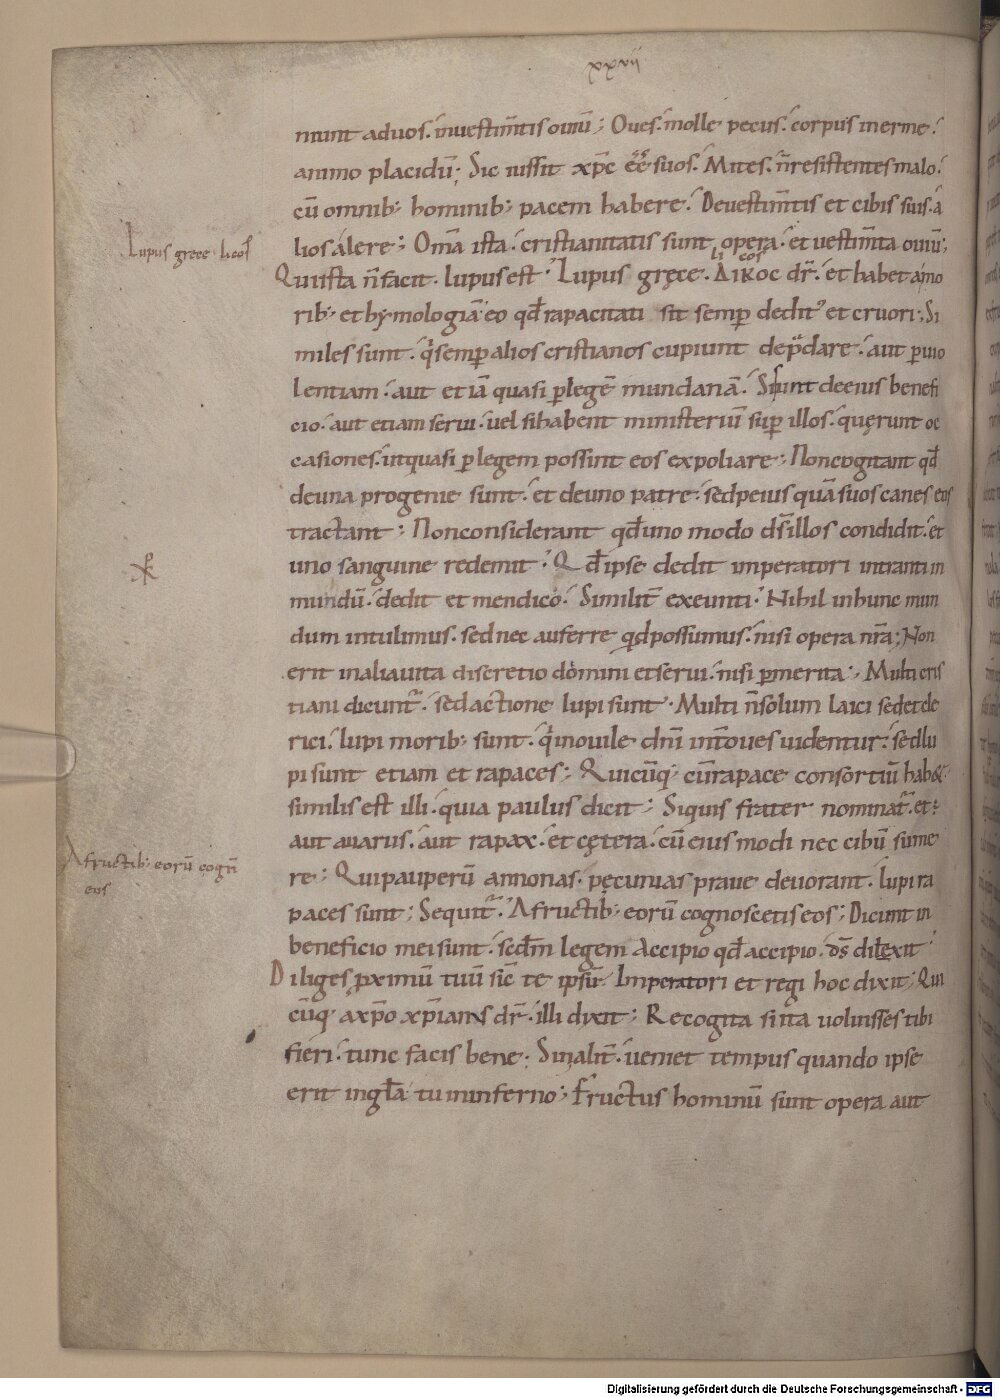 xxvii
niunt aduos. inuestim̅tis ouiu̅; Oues. molle pecus. corpus inerme.
animo placidu̅; Sic iussit xp̅c ee̅ suos. Mites. n̅resistentes malo.
cu̅ omnib; hominib; pacem habere. Deuestim̅tis et cibis suis. a
lios alere; Om̅a ista. cristianitatis sunt opera. et uestim̅ta ouiu̅;
Lupus grece licos
li cos
Quiista n̅ facit. lupus est. Lupus gręce. Λικος dr̅. et habet amo
rib; et hẏmologia̅ eo qd̅ rapacitati sit semp̲ dedit et cruori; Si
miles sunt. q̇ semp̲ alios cristianos cupiunt dep̅dare. aut p̲uio
lentiam. aut etia̅ quasi p̲lege̅ mundana̅. Si sunt deeius benefi
cio. aut etiam serui. uel sihabent ministeriu̅ sup̲ illos. quęrunt oc
casiones. utquasi p̲legem possint eos expoliare; Noncogitant qd̅
deuna progenie sunt. et deuno patre. sedpeius qua̅ suos canes eos
tractant; Nonconsiderant qd̅uno modo ds̅ illos condidit. et
uno sanguine redemit. Qd̅ ipse dedit imperatori intranti in
mundu̅. dedit et mendico. Similit̅ exeunti. Nihil inhunc mun
dum intulimus. sed nec auferre qd̅ possumus. nisi opera nr̅a; Non
erit inaliauita discretio domini etserui. nisi p̲merita; Multi cris
tiani dicunt̅. sed actione lupi sunt. Multi n̅solum laici sedetcle
rici. lupi morib; sunt. q̇ inouile dn̅i int̅ oues uidentur. sed lu
pi sunt etiam et rapaces; Quicu̅q; cu̅rapace consortiu̅ hab&
similis est illi. quia paulus dicit; Siquis frater nominat̅. et
aut auarus. aut rapax. et cętera. cu̅ eius modi nec cibu̅ sume
Afructib; eoru̅ cogn̅
eos
re; Quipauperu̅ annonas. pęcunias praue deuorant. lupi ra
paces sunt; Sequit̅. Afructib; eoru̅ cognoscetis eos; Dicunt in
beneficio mei sunt. sed̅m legem accipio qd̅ accipio. ds̅ dilexit
Diliges p̲ximu̅ tuu̅ sic̅ te ipsu̅. Imperatori et regi hoc dixit; Qui
cu̅q; axp̅o xp̅ianus dr̅. illi dixit; Recogita si ita uoluisses tibi
fieri. tunc facis bene; Sinalit̅. ueniet tempus quando ipse
erit ingl̅a tu ininferno; Fructus hominu̅ sunt opera aut
Digitalisierung gefördert durch die Deutsche Forschungsgemeinschaft - DFG